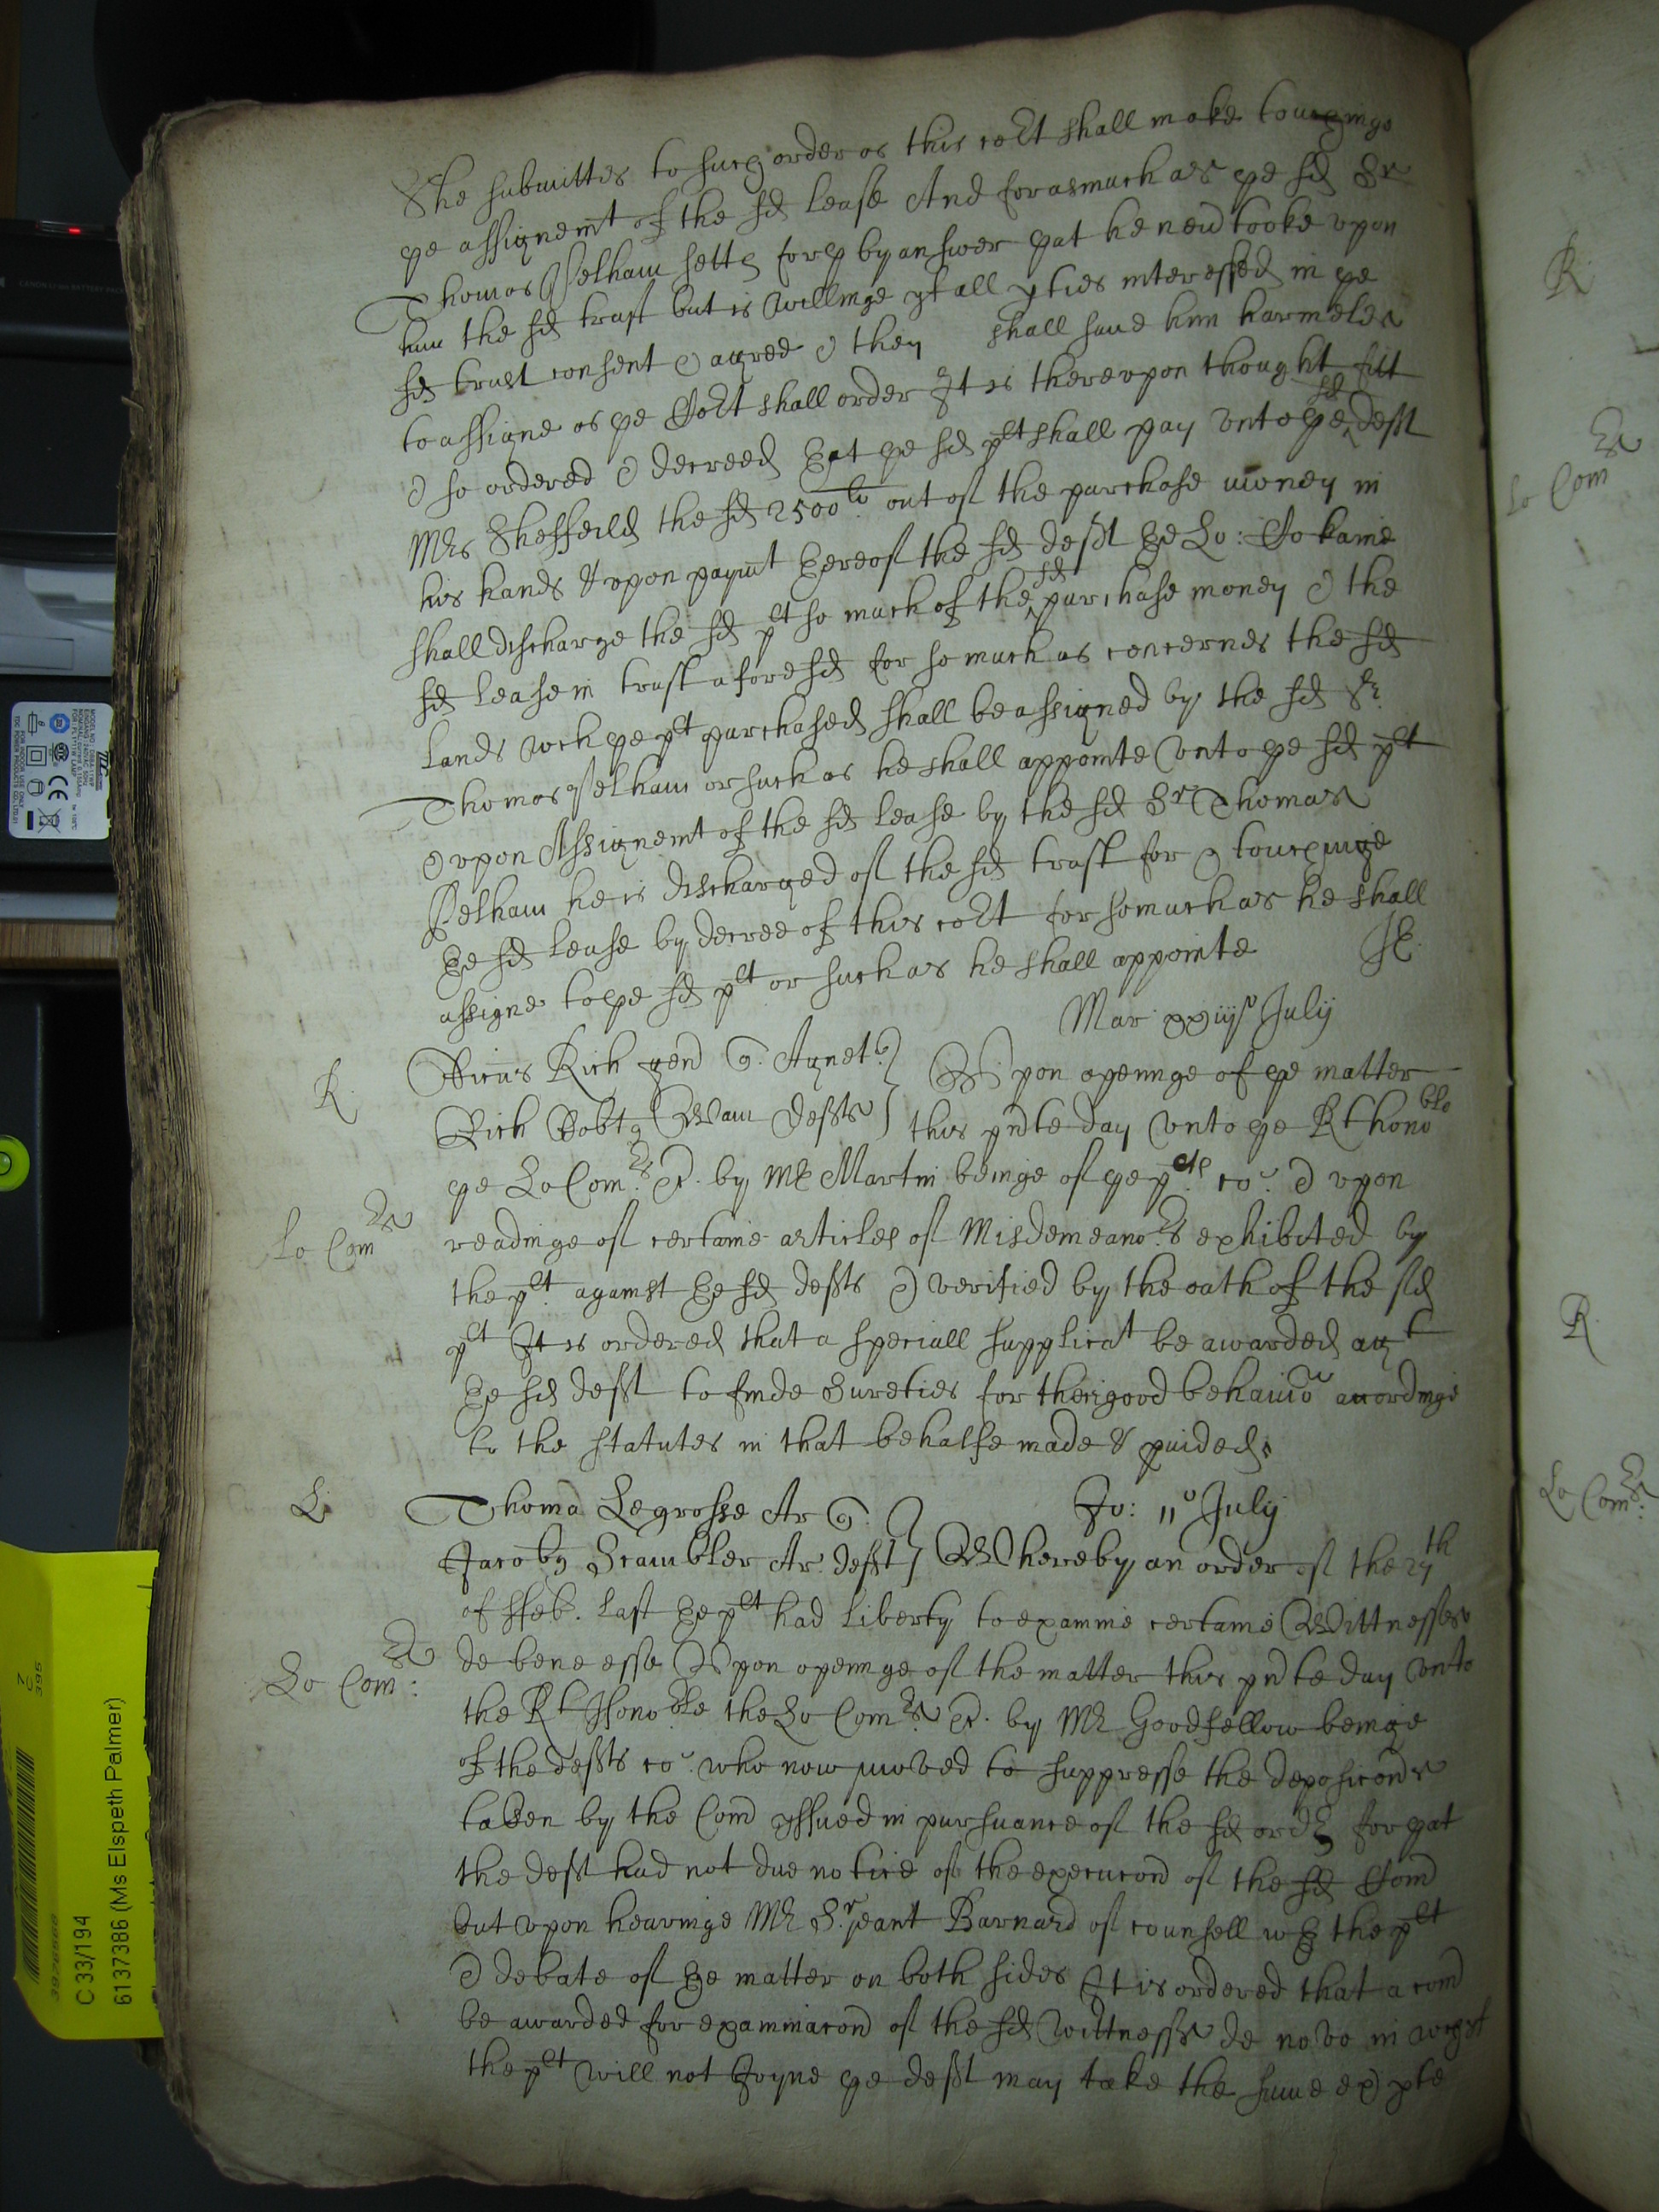 She submittes to such order as this co^rt shall make touchinge
ye assignem^t of the sd lease And forasmuch as ye sd S^r
Thomas Pelham setts forth by answer yat he nev^r tooke vpon
him the sd trust but is willinge yf all pties interessed in ye
sd trust consent & agree & they shall saue him harmeles
to assigne as ye Co^rt shall order It is therevpon thought fitt
& so ordered & decreed yat ye sd pl^t shall pay vnto ye sd deft
M^rs Sheffeild the sd 2500^li out of the purchase money in
his hands & vpon paym^t thereof the sd deft ye Lo: Cokaine
shall discharge the sd pl^t so much of the sd purchase money & the
sd lease in trust aforesd for so much as concernes the sd
lands wch ye pl^t purchased shall be assigned by the sd S^r
Thomas Pelham or such as he shall appointe vnto ye sd pl^t
& vpon Assignem^t of the sd lease by the sd S^r Thomas
Pelham he is discharged of the sd trust for & touchinge
ye sd lease by decree of this co^rt for so much as he shall
assigne to ye sd pl^t or such as he shall appointe
Mar: xxiij^o July
R.
Rich gen q. Agnet
Vpon openinge of ye matter
Rich defts
this pnte day vnto ye R^t hono^ble
ye Lo Com^rs by M^r Martin beinge of ye pl^ts co: & vpon
Lo Com^rs
readinge of certaine articles of Misdemeano^rs exhibited by
the pl^t against ye sd defts & verified by the oath of the sd
pl^t It is ordered that a speciall supplica^t be awarded ag^t
ye sd deft to finde Sureties for their good behavio^r accordinge
to the statutes in that behalfe made & pvided.
L.
Thoma Legrosse Ar q.
Jo: 11^o July
Jacobus Scambler Ar. deft
Whereby an order of the 27^th
of ffeb. last ye pl^t had liberty to examine certaine Wittnesses
de bene esse Vpon openinge of the matter this pnte day vnto
Lo Com^rs:
the R^t Hono^ble the Lo Com^rs by M^r Goodfellow beinge
of the defts co: who now moved to suppresse the deposicons
taken by the Com yssued in pursuance of the sd ord^r for yat
the deft had not due notice of the execucon of the sd Com
but vpon hearinge M^r S^rjeant Barnard of counsell w^th the pl^t
& debate of ye matter on both sides It is ordered that a com
be awarded for examinacon of the sd Wittnesses de novo in w^ch yf
the pl^t will not Joyne ye deft may take the same ex pte
R.
Lo Com^rs
R.
Lo Com^rs:
C 33/194
6137386 (Ms Elspeth Palmer)